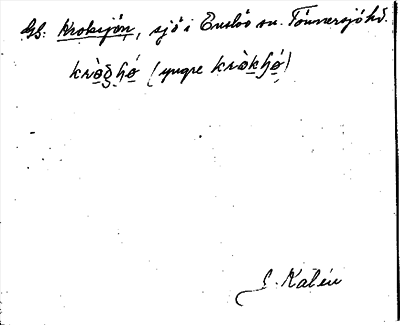 Gb. Kroksjön, sjö i Enslöv sn. Tönnersjö hd.
kròg̣hó (yngre kròkhó)
S. Kalén